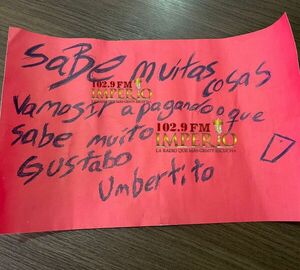 SaBe muitas
cosas
102.9 FM
IMPERIO
LA RADIO QUE MAS GENTE ESCUCHA
Vamos ir apagando o que
sabe muito
102.9 FM
IMPERIO
LA RADIO QUE MAS GENTE ESCUCHA
Gustabo
Umbertito